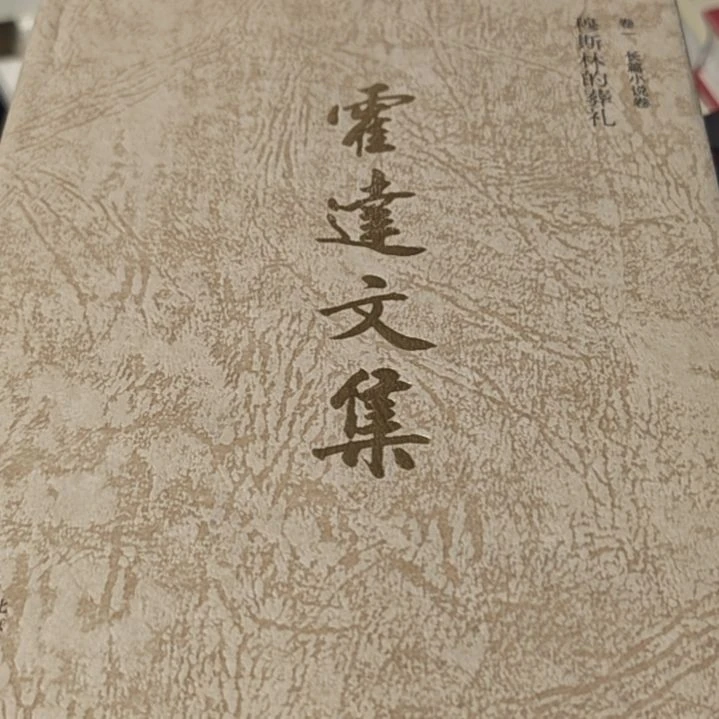 卷一 长篇小说卷
穆斯林的葬礼
霍達文集